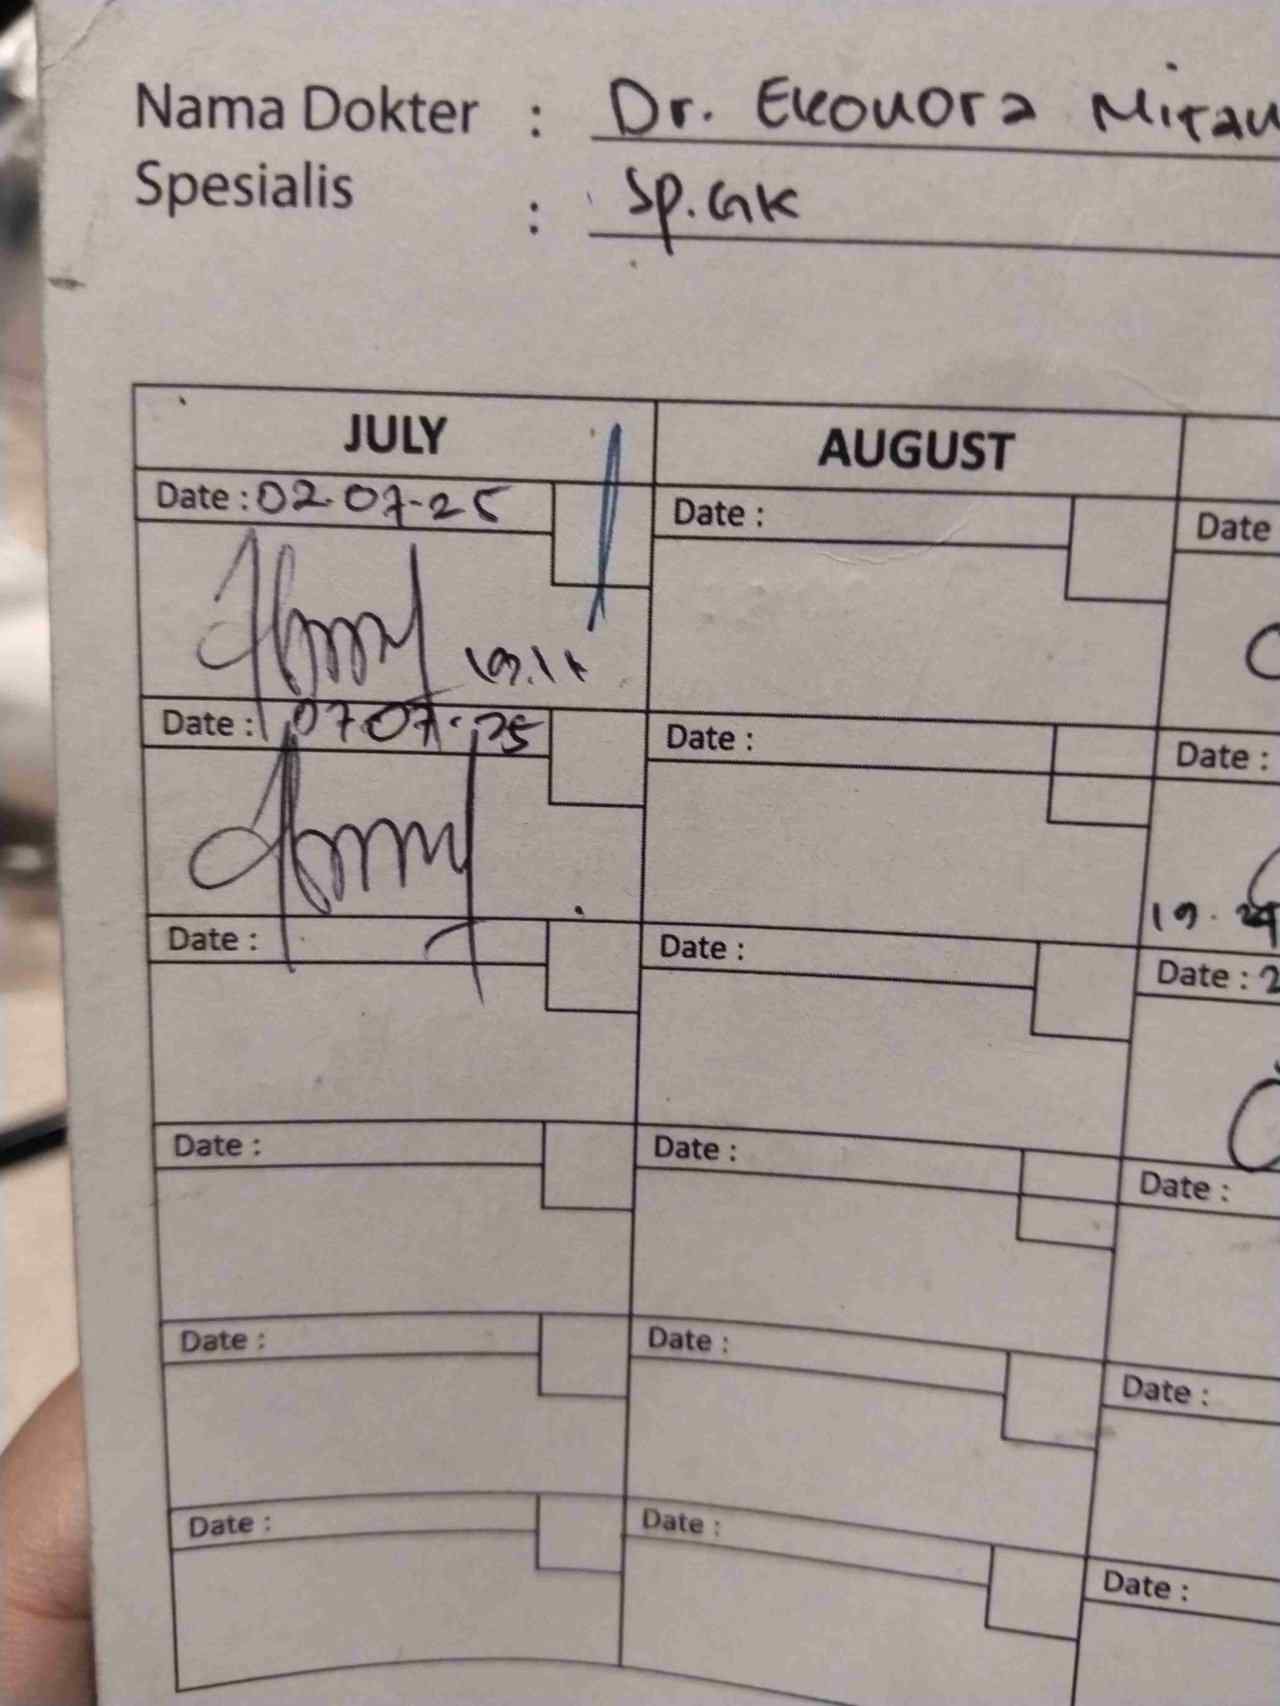 Nama Dokter : Dr. Eleonora Mitau
Spesialis : Sp.GK
JULY AUGUST
Date : 02-07-25 Date : Date
19.11
Date : 07 07-25 Date : Date :
19.29
Date : Date : Date : 2
Date : Date : Date :
Date : Date : Date :
Date : Date : Date :